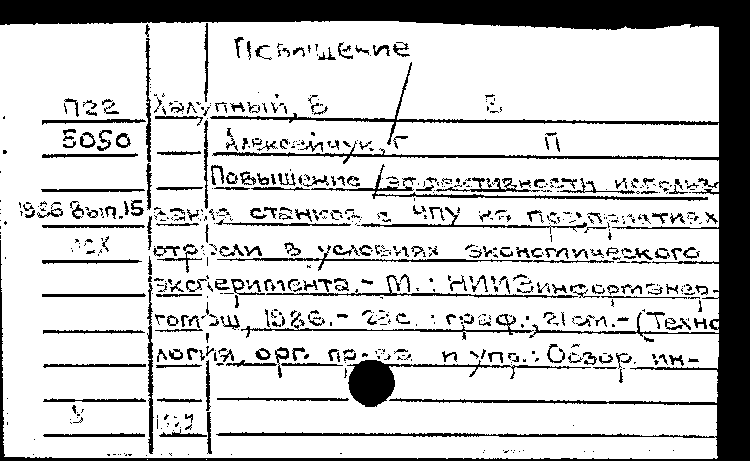 Повышение
П22 Халупный, В В
5050 Алексейчук, Г П
Повышение эффективности использо-
1986 вып.15 вания станков с ЧПУ на предприятиях
отрасли в условиях экономического
эксперимента.- М.: НИИЭинформэнер-
гомаш, 1986.- 23с. : граф.; 21см.-(Техно
логия, орг. пр-ва и упр.: Обзор. ин-